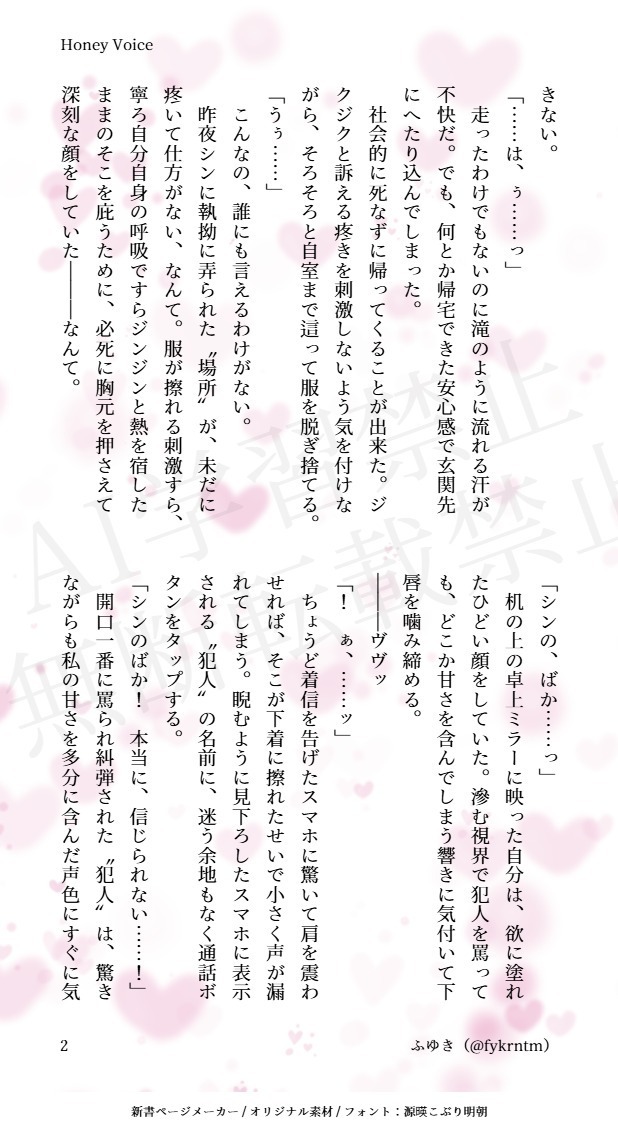 Honey Voice
きない。
「……は、ぅ……っ」
　走ったわけでもないのに滝のように流れる汗が
不快だ。でも、何とか帰宅できた安心感で玄関先
にへたり込んでしまった。
　社会的に死なずに帰ってくることが出来た。ジ
クジクと訴える疼きを刺激しないよう気を付けな
がら、そろそろと自室まで這って服を脱ぎ捨てる。
「うぅ……」
　こんなの、誰にも言えるわけがない。
　昨夜シンに執拗に弄られた〝場所〟が、未だに
疼いて仕方がない、なんて。服が擦れる刺激すら、
寧ろ自分自身の呼吸ですらジンジンと熱を宿した
ままのそこを庇うために、必死に胸元を押さえて
深刻な顔をしていた――――なんて。
「シンの、ばか……っ」
　机の上の卓上ミラーに映った自分は、欲に塗れ
たひどい顔をしていた。滲む視界で犯人を罵って
も、どこか甘さを含んでしまう響きに気付いて下
唇を噛み締める。
――ヴヴッ
「！　ぁ、……ッ」
　ちょうど着信を告げたスマホに驚いて肩を震わ
せれば、そこが下着に擦れたせいで小さく声が漏
れてしまう。睨むように見下ろしたスマホに表示
される〝犯人〟の名前に、迷う余地もなく通話ボ
タンをタップする。
「シンのばか！　本当に、信じられない……！」
　開口一番に罵られ糾弾された〝犯人〟は、驚き
ながらも私の甘さを多分に含んだ声色にすぐに気
2
ふゆき（@fykrntm）
新書ページメーカー / オリジナル素材 / フォント：源暎こぶり明朝
AI学習禁止
無断転載禁止